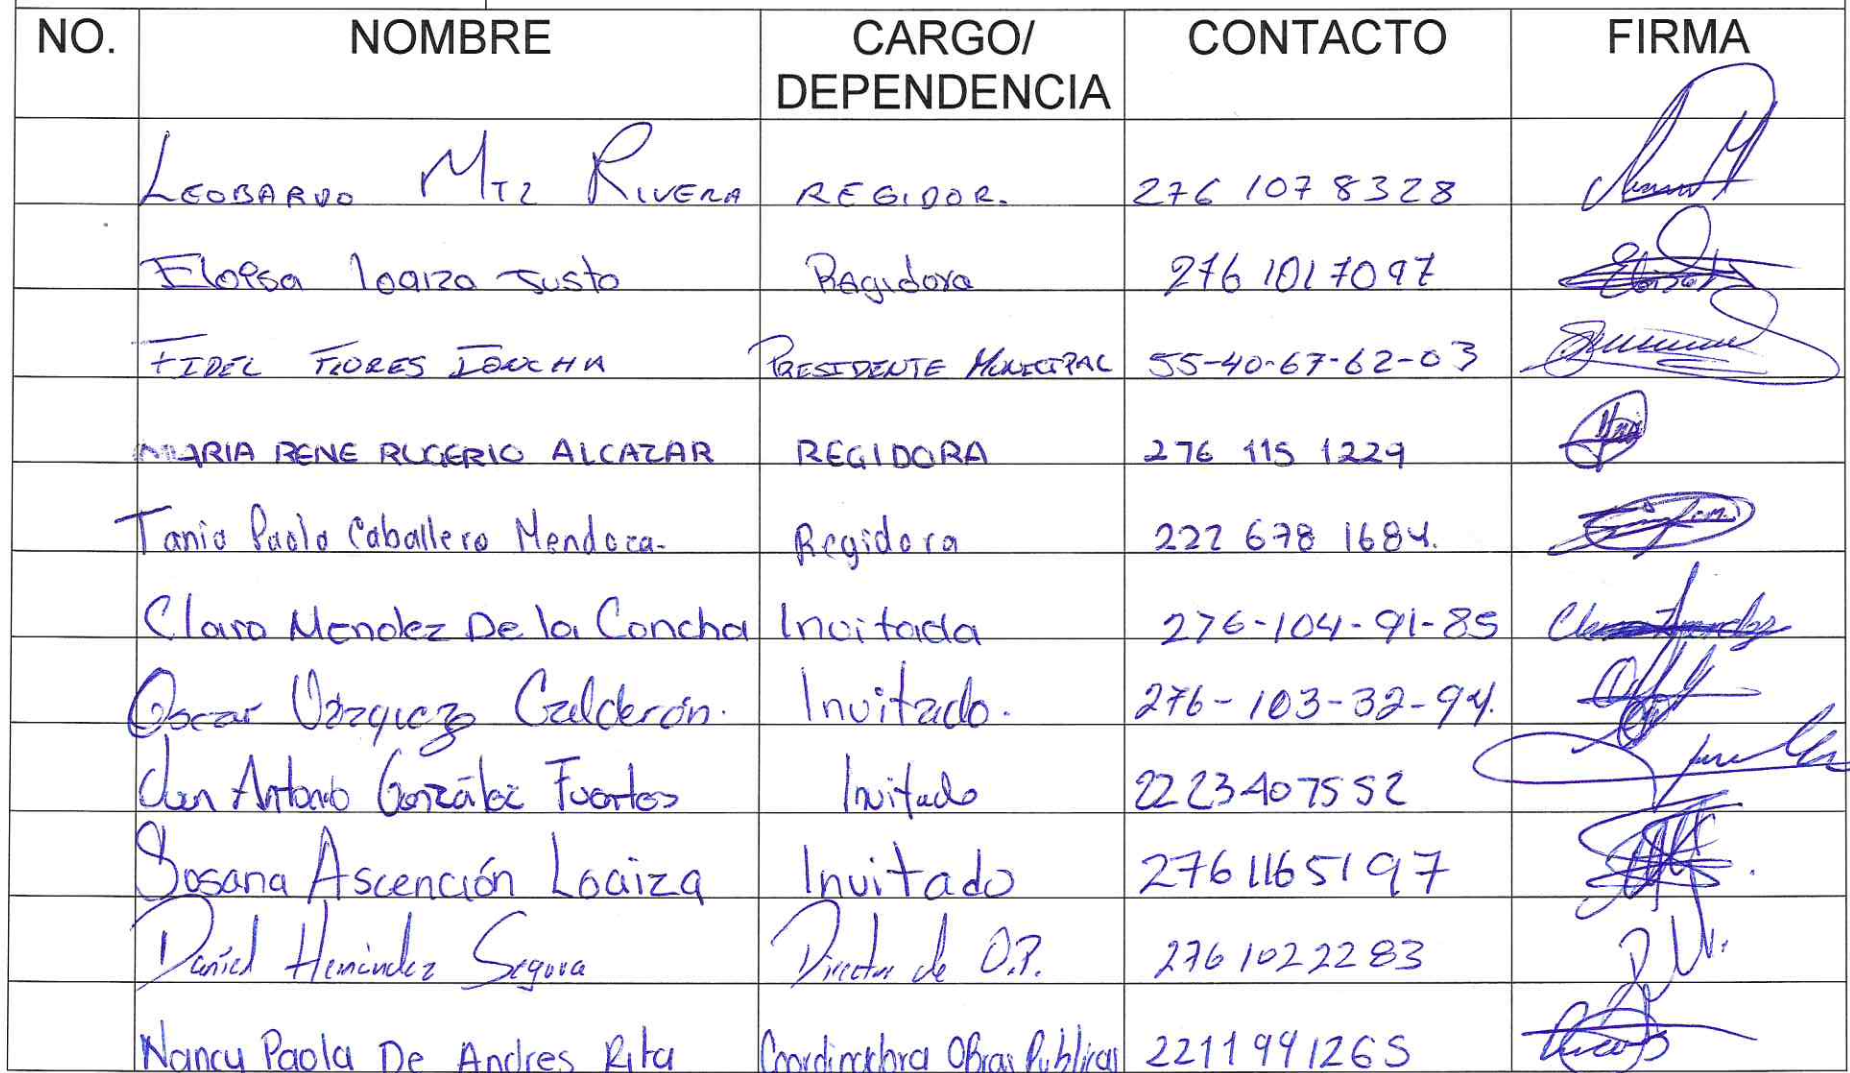 NO. NOMBRE CARGO/ CONTACTO FIRMA
DEPENDENCIA
LEOBARDO MTZ RIVERA REGIDOR. 276 107 8328
Eloisa loaiza Justo Regidora 276 1017097
FIDEL FLORES PRESIDENTE MUNICIPAL 55-40-67-62-03
MARIA RENE RUGERIO ALCAZAR REGIDORA 276 115 1229
Tania Paola Caballero Mendoza. Regidora 222 678 1684.
Clara Mendez De la Concha Invitada 276-104-91-85
Oscar Vázquez Calderón. Invitado. 276-103-32-94.
Juan Antonio González Fuertes Invitado 2223407552
Susana Ascención Loaiza Invitado 2761165197
Daniel Hernández Segura Director de O.P. 2761022283
Nancy Paola De Andres Rita Coordinadora Obras Publicas 2211991265